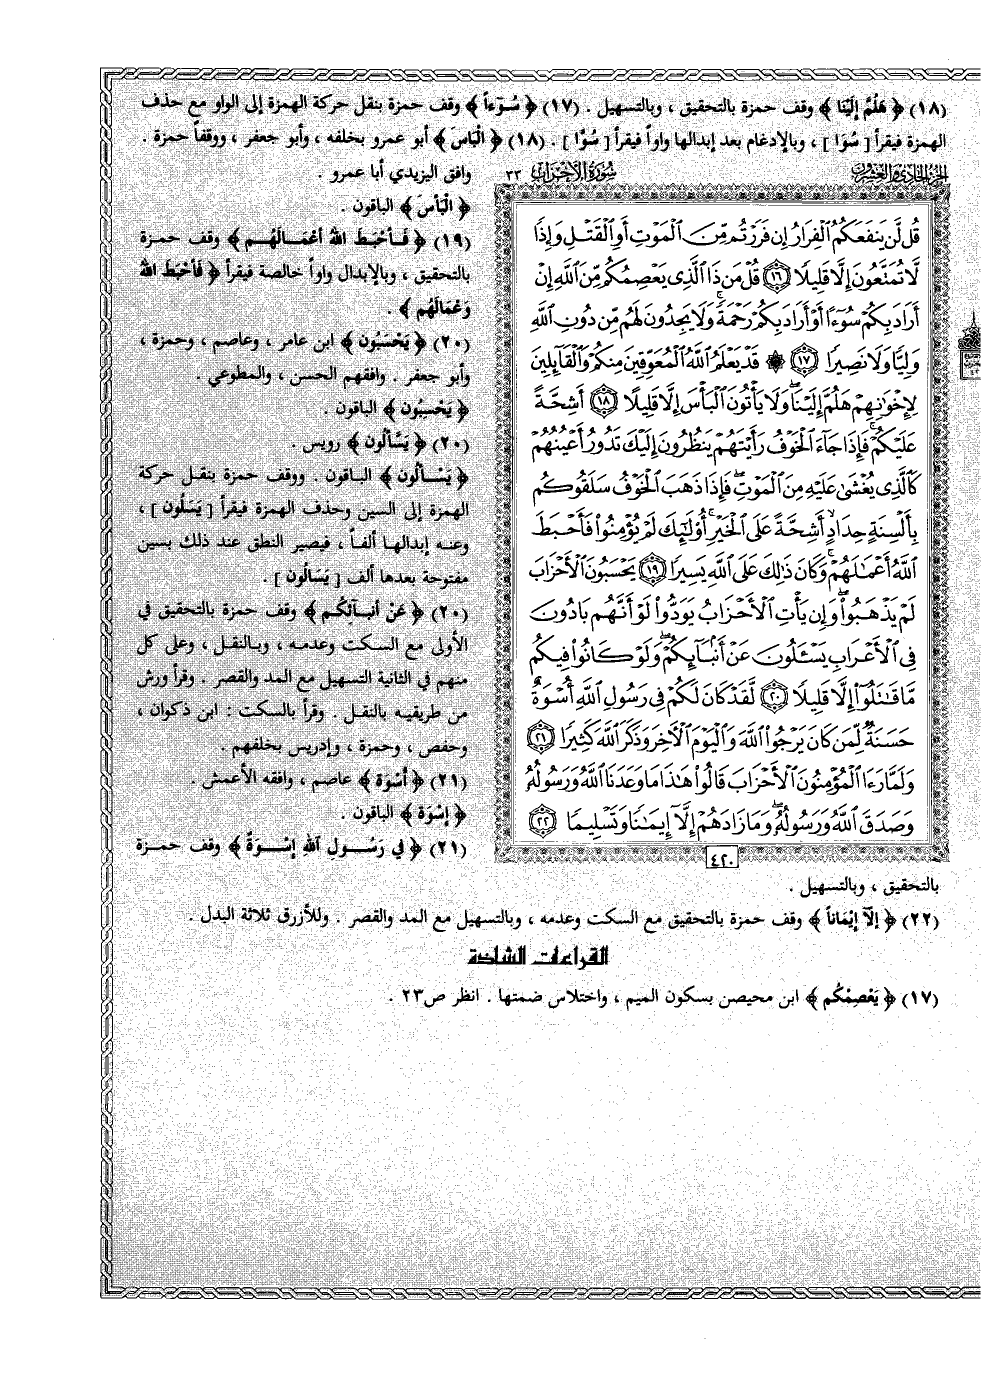 (١٨) ﴿ هَلُمَّ إِلَيْنَا ﴾ وقف حمزة بالتحقيق ، وبالتسهيل . (١٧) ﴿ سُوْءاً ﴾ وقف حمزة بنقل حركة الهمزة إلى الواو مع حذف
الهمزة فيقرأ [ سُوَا ] ، وبالإدغام بعد إبدالها واواً فيقرأ [ سُوًّا ] . (١٨) ﴿ الْبَاسَ ﴾ أبو عمرو بخلفه ، وأبو جعفر ، ووقفاً حمزة .
الجزء الحادي والعشرون
سورة الأحزاب ٣٣
قُل لَّن يَنفَعَكُمُ ٱلْفِرَارُ إِن فَرَرْتُم مِّنَ ٱلْمَوْتِ أَوِ ٱلْقَتْلِ وَإِذًا
لَّا تُمَتَّعُونَ إِلَّا قَلِيلًا ١٦ قُلْ مَن ذَا ٱلَّذِى يَعْصِمُكُم مِّنَ ٱللَّهِ إِنْ
أَرَادَ بِكُمْ سُوٓءًا أَوْ أَرَادَ بِكُمْ رَحْمَةً ۚ وَلَا يَجِدُونَ لَهُم مِّن دُونِ ٱللَّهِ
وَلِيًّا وَلَا نَصِيرًا ١٧ ۞ قَدْ يَعْلَمُ ٱللَّهُ ٱلْمُعَوِّقِينَ مِنكُمْ وَٱلْقَآئِلِينَ
لِإِخْوَٰنِهِمْ هَلُمَّ إِلَيْنَا ۖ وَلَا يَأْتُونَ ٱلْبَأْسَ إِلَّا قَلِيلًا ١٨ أَشِحَّةً
عَلَيْكُمْ ۖ فَإِذَا جَآءَ ٱلْخَوْفُ رَأَيْتَهُمْ يَنظُرُونَ إِلَيْكَ تَدُورُ أَعْيُنُهُمْ
كَٱلَّذِى يُغْشَىٰ عَلَيْهِ مِنَ ٱلْمَوْتِ ۖ فَإِذَا ذَهَبَ ٱلْخَوْفُ سَلَقُوكُم
بِأَلْسِنَةٍ حِدَادٍ أَشِحَّةً عَلَى ٱلْخَيْرِ ۚ أُو۟لَٰٓئِكَ لَمْ يُؤْمِنُوا۟ فَأَحْبَطَ
ٱللَّهُ أَعْمَٰلَهُمْ ۚ وَكَانَ ذَٰلِكَ عَلَى ٱللَّهِ يَسِيرًا ١٩ يَحْسَبُونَ ٱلْأَحْزَابَ
لَمْ يَذْهَبُوا۟ ۖ وَإِن يَأْتِ ٱلْأَحْزَابُ يَوَدُّوا۟ لَوْ أَنَّهُم بَادُونَ
فِى ٱلْأَعْرَابِ يَسْـَٔلُونَ عَنْ أَنۢبَآئِكُمْ ۖ وَلَوْ كَانُوا۟ فِيكُم
مَّا قَٰتَلُوٓا۟ إِلَّا قَلِيلًا ٢٠ لَّقَدْ كَانَ لَكُمْ فِى رَسُولِ ٱللَّهِ أُسْوَةٌ
حَسَنَةٌ لِّمَن كَانَ يَرْجُوا۟ ٱللَّهَ وَٱلْيَوْمَ ٱلْءَاخِرَ وَذَكَرَ ٱللَّهَ كَثِيرًا ٢١
وَلَمَّا رَءَا ٱلْمُؤْمِنُونَ ٱلْأَحْزَابَ قَالُوا۟ هَٰذَا مَا وَعَدَنَا ٱللَّهُ وَرَسُولُهُۥ
وَصَدَقَ ٱللَّهُ وَرَسُولُهُۥ ۚ وَمَا زَادَهُمْ إِلَّآ إِيمَٰنًا وَتَسْلِيمًا ٢٢
٤٢٠
وافق اليزيدي أبا عمرو .
﴿ الْبَأْسَ ﴾ الباقون .
(١٩) ﴿ فَأَحْبَطَ اللهُ أَعْمَالَهُم ﴾ وقف حمزة
بالتحقيق ، وبالإبدال واواً خالصة فيقرأ ﴿ فَأَحْبَطَ اللهُ
وَعْمَالَهُم ﴾ .
(٢٠) ﴿ يَحْسَبُون ﴾ ابن عامر ، وعاصم ، وحمزة ،
وأبو جعفر . وافقهم الحسن ، والمطوعي .
﴿ يَحْسِبُون ﴾ الباقون .
(٢٠) ﴿ يَسَّاَلُون ﴾ رويس .
﴿ يَسْأَلُون ﴾ الباقون . ووقف حمزة بنقل حركة
الهمزة إلى السين وحذف الهمزة فيقرأ [ يَسَلُون ] ،
وعنه إبدالها ألفاً ، فيصير النطق عند ذلك بسين
مفتوحة بعدها ألف [ يَسَالُون ] .
(٢٠) ﴿ عَنْ أنبـآئكُم ﴾ وقف حمزة بالتحقيق في
الأولى مع السكت وعدمه ، وبالنقل ، وعلى كل
منهم في الثانية التسهيل مع المد والقصر . وقرأ ورش
من طريقيه بالنقل . وقرأ بالسكت : ابن ذكوان ،
وحفص ، وحمزة ، وإدريس بخلفهم .
(٢١) ﴿ أُسْوَة ﴾ عاصم ، وافقه الأعمش .
﴿ إِسْوَة ﴾ الباقون .
(٢١) ﴿ فِي رَسُول اللهِ إِسْوَةٌ ﴾ وقف حمزة
بالتحقيق ، وبالتسهيل .
(٢٢) ﴿ إِلاَّ إِيْمَاناً ﴾ وقف حمزة بالتحقيق مع السكت وعدمه ، وبالتسهيل مع المد والقصر . وللأزرق ثلاثة البدل .
القراءات الشاذة
(١٧) ﴿ يَعْصِمْكُم ﴾ ابن محيصن بسكون الميم ، واختلاس ضمتها . انظر ص٢٣ .